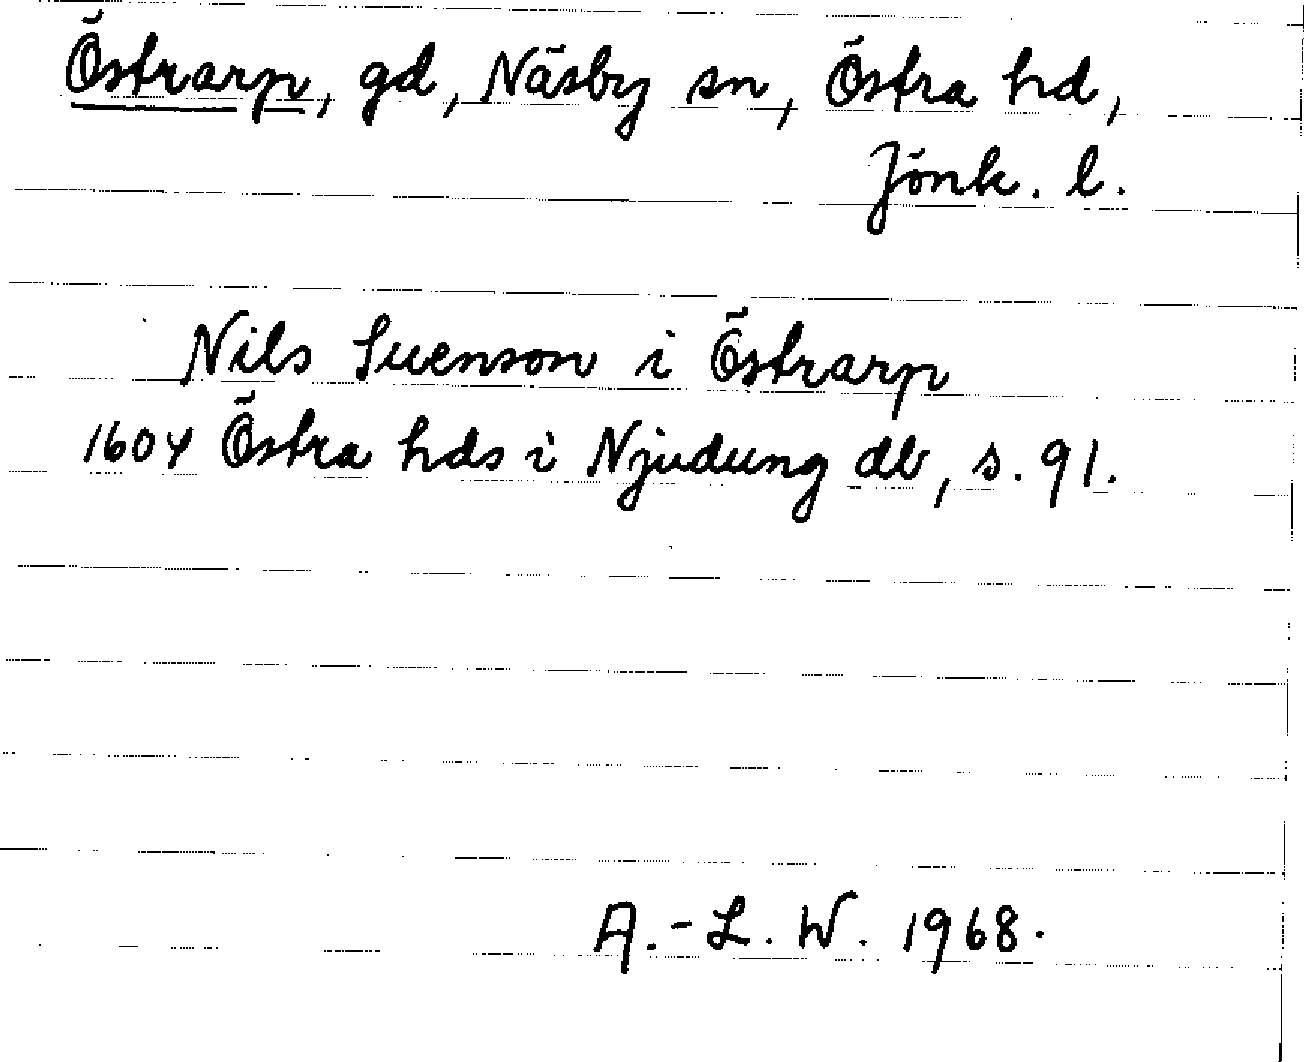 Östrarp, gd, Näsby sn, Östra hd,
Jönk. l.
Nils Svenson i Östrarp
1604 Östra hds i Njudung db, s. 91.
A.-L. W. 1968.